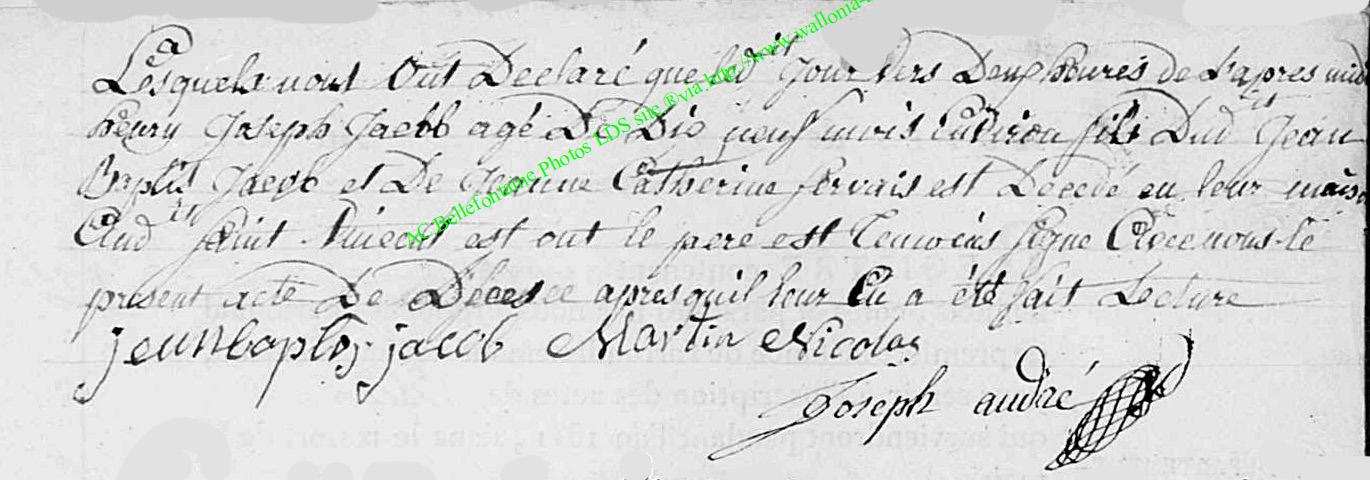 Lesquels nous Ont Declaré que led it Jour vers Deux heures de L'apres midi
henry Joseph Jacob agé De Dix neuf mois Environ fils Dud it Jean
Baptis Jacob et De Jeanne Catherine gervais est Decedé en leur mais
Aud it Saint Vincent est ont le pere est Temoins signe Avec nous le
present acte De Décès apres quil leur En a été fait Lecture
jeun baptis jacob Martin Nicolas
Joseph andré
AC Bellefontaine Photos LDS site @via http://www.wallonia-